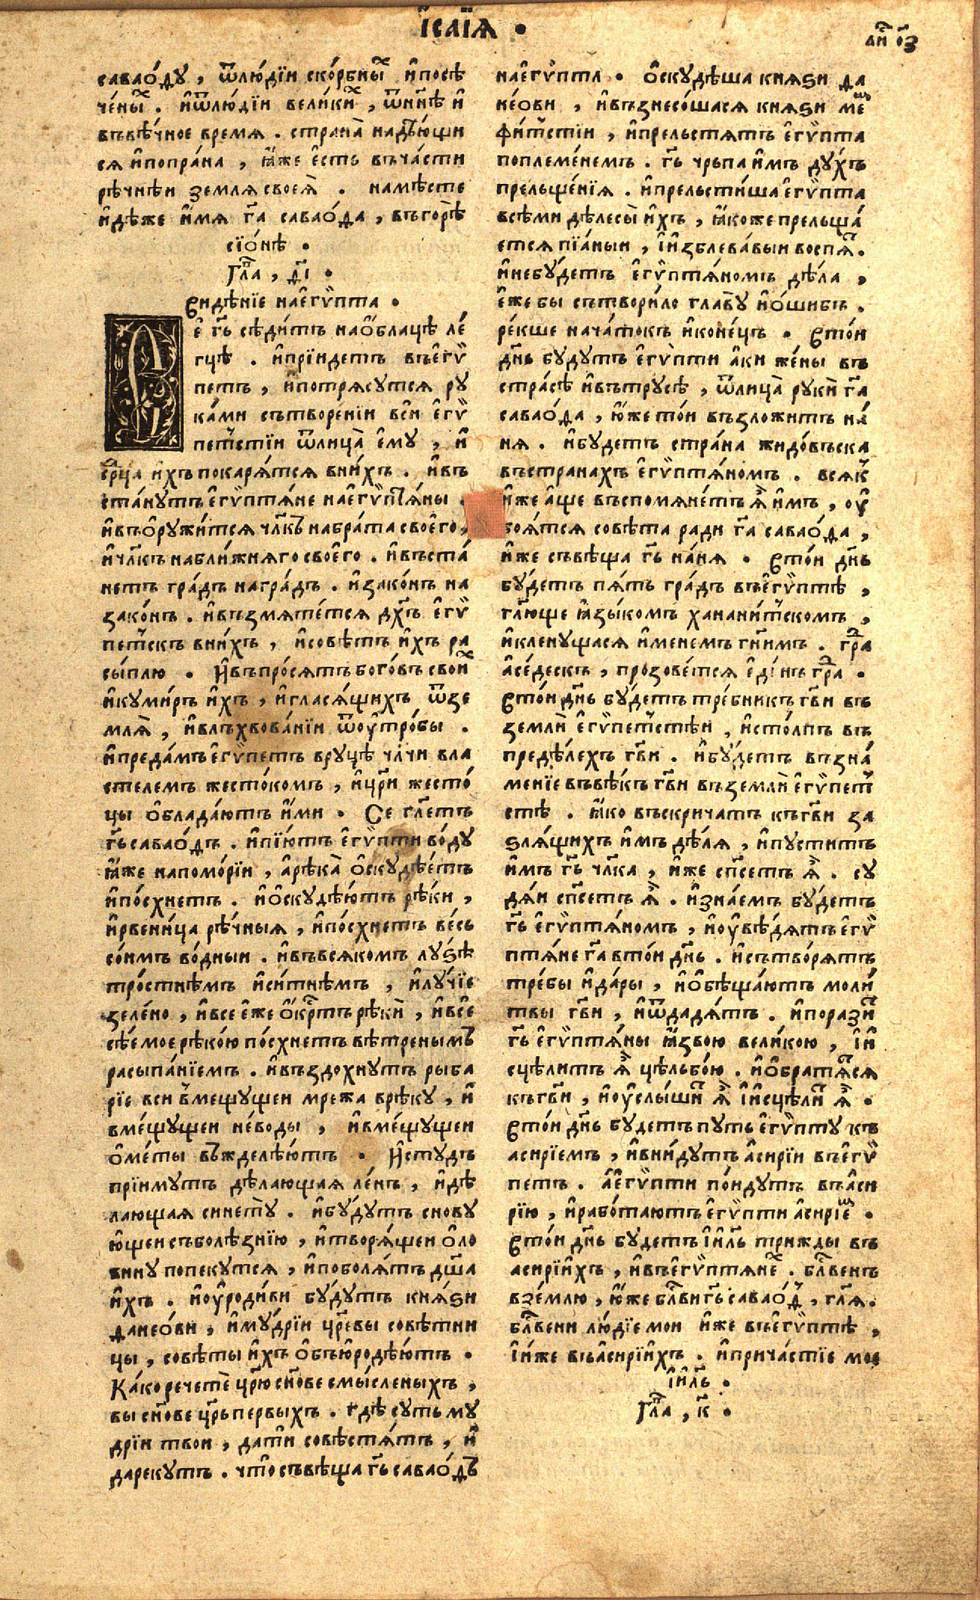 І҆саїѧ .
саваоду , ѿлюдїи скорбны и҆посѣ
чены . и҆ѿлюдїи велики , ѿнн҃ѣ и҆
въвѣчное время . страна надѣющи
ся и҆попрана , ꙗ҆же є҆сть въчасти
рѣчнѣи земля своея . намѣсте
и҆дѣже и҆мя гд҃а саваоѳа , въгорѣ
сїонѣ .
Гла҃ , ѳ҃і .
Видѣнїе наегѵпта .
Се гд҃ь сѣдитъ наоблацѣ ле
гцѣ . и҆прїидетъ въегѵ
петъ , и҆потрясутся ру
ками сътворенїи вси егѵ
петстїи ѿлица ему , и҆
ср҃ца и҆хъ покарятся вних . и҆въ
станутъ егѵптяне наегѵптяны .
и҆въоружится чл҃къ набрата своего ,
и҆чл҃къ наближняго своего . и҆въста
нетъ градъ наградъ . и҆законъ на
законъ . и҆възмятется дх҃ъ егѵ
петскъ вних , и҆совѣтъ и҆хъ ра
сыплю . И҆въпросятъ боговъ свои
и҆кумиръ и҆хъ , и҆гласящихъ ѿзе
мля , и҆влъхвованїи ѿоутробы .
и҆предамъ егѵпетъ вруцѣ чл҃чи вла
стелемъ жестокомъ , и҆цр҃и жесто
цы обладаютъ и҆ми . Се гл҃етъ
гд҃ь саваоѳъ . и҆пїютъ егѵпти воду
ꙗ҆же напоморїи , арѣка оскудѣетъ
и҆посхнетъ . и҆оскудѣютъ рѣки ,
и҆рвеница рѣчныя , и҆посхнетъ весь
сонмъ водныи . и҆въвсякомъ лузѣ
тростнѣмъ и҆ситнѣмъ , и҆лучїе
зелено , и҆все еже окр҃тъ рѣки , и҆все
сѣемое рѣкою посхнетъ вѣтренымъ
расыпанїемъ . и҆въздохнутъ рыба
рїе вси вмещущеи мрежа врѣку , и҆
вмещущеи неводы , и҆вмещущеи
ометы въжделѣютъ . И҆студъ
прїимутъ дѣлающая ленъ , и҆дѣ
лающая синету . и҆будутъ снову
ющеи съболѣзнїю , и҆творящеи оло
вину попекутся , и҆поболятъ дш҃а
и҆хъ . и҆оуродиви будутъ князи
данеови , и҆мудрїи цр҃евы совѣтни
цы , совѣты и҆хъ объюродѣютъ .
Како речете цр҃ю сн҃ове смысленыхъ ,
вы сн҃ове цр҃ь первыхъ . гдѣ суть му
дрїи твои , дати совѣстятъ , и҆
да рекутъ . что съвѣща гд҃ь саваоѳъ
наегѵптѧ . оскудѣша князи да
неови , и҆възнесошася князи ме
фитстїи , и҆прельстятъ егѵпта
поплеменемъ . гд҃ь чрьпа имъ духъ
прельщенїя . и҆прельстиша егѵпта
всѣми дѣлесы и҆хъ , ꙗ҆коже прельща
ется пїаныи , ї҆изблевавыи воспя .
и҆небудетъ егѵптяномъ дѣла ,
еже бы сътворило главу и҆ошибъ .
рекше начатокъ и҆конецъ . Втои
дн҃ь будутъ егѵпти аки жены въ
страсѣ и҆вътрусѣ , ѿлица руки гд҃а
саваоѳа , ю҆же тои възложитъ на
ня . и҆будетъ страна жидовъска
въстранахъ егѵптяномъ . всяк
и҆же аще въспомянетъ я и҆мъ , оу
боятся совѣта ради гд҃а саваоѳа ,
и҆же съвѣща гд҃ь наня . Втои дн҃ь
будетъ пять градъ въегѵптѣ ,
гл҃юще ꙗ҆зыкомъ хананитскомъ ,
и҆кленущася и҆менемъ гн҃имъ . гра
аседескъ , прозовется единъ гра .
Втои дн҃ь будетъ требникъ гд҃ви въ
земли егѵпетстѣи , и҆столпъ въ
предѣлехъ гд҃ви . и҆будетъ възна
менїе въвѣкъ гд҃ви въземли егѵпет
стѣ . ꙗ҆ко въскричатъ къгд҃ви за
злящихъ и҆мъ дѣля , и҆пуститъ
и҆мъ гд҃ь чл҃ка , и҆же сп҃сетъ я . су
дяи сп҃сетъ я . и҆знаемъ будетъ
гд҃ь егѵптяномъ , и҆оувѣдятъ егѵ
птяне гд҃а втои дн҃ь . и҆сътворятъ
требы и҆дары , и҆обѣщаютъ моли
твы гд҃ви , и҆ѿдадятъ . и҆порази
гд҃ь егѵптяны ꙗ҆звою великою , ї҆и
сцѣлитъ я цѣльбою . и҆обратятся
къгд҃ви , и҆оуслыши я ї҆исцѣли я .
Втои дн҃ь будетъ путь егѵпту къ
асирїемъ , и҆внидутъ асирїи въегѵ
петъ . аегѵпти поидутъ въаси
рїю , и҆работаютъ егѵпти асирїе .
Втои дн҃ь будетъ ї҆ил҃ь трижды въ
асирїихъ , и҆въегѵптяне . блг҃венъ
вземлю , ю҆же блг҃ви гд҃ь саваоѳ , гл҃я .
блг҃вени людїе мои и҆же въегѵптѣ ,
ї҆иже въасирїихъ . и҆причастїе мое
ї҆ил҃ь .
Гла҃ , к҃ .